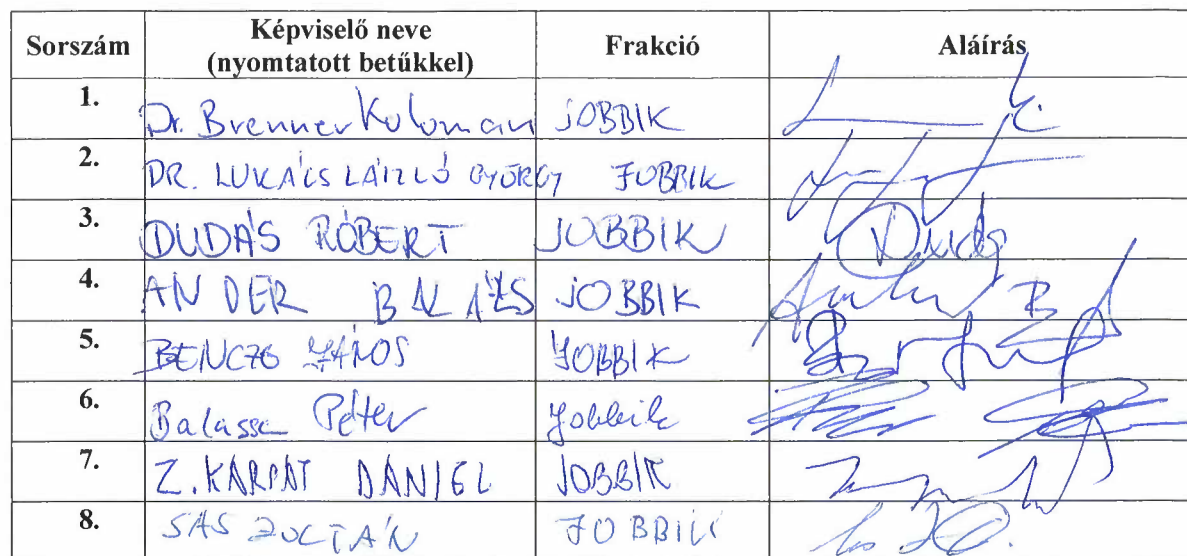 Sorszám Képviselő neve (nyomtatott betűkkel) Frakció Aláírás
1. Dr. Brenner Koloman JOBBIK
2. DR. LUKÁCS LÁSZLÓ GYÖRGY JOBBIK
3. DUDÁS RÓBERT JOBBIK Dudás
4. ANDER BALÁZS JOBBIK Ander B
5. BENCZE JÁNOS JOBBIK
6. Balassa Péter Jobbik
7. Z. KÁRPÁT DÁNIEL JOBBIK
8. SAS ZOLTÁN JOBBIK